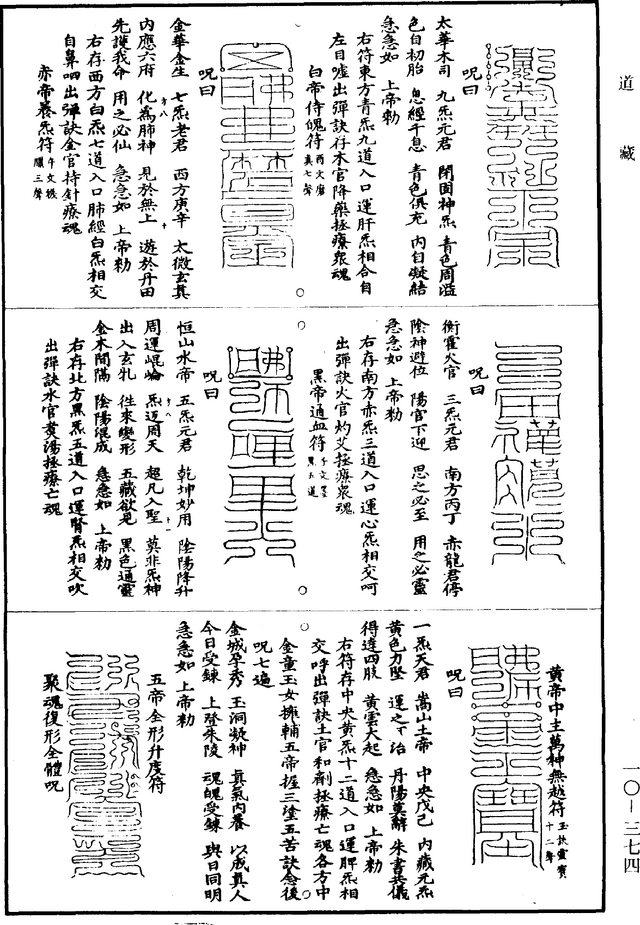 道藏
呪曰
太華木司　九炁元君　閉固神炁　青色周溢
色自初胎　息經千息　青色俱充　內自凝結
急急如　上帝勑
右符東方青炁九道入口運肝炁相合自
左目噓出彈訣存木官降藥拯療衆魂
白帝侍魄符
呪曰
金華金生　七炁老君　西方庚辛　太微玄真
內應六府　化為肺神　見於無上　遊於丹田
先護我命　用之必仙　急急如　上帝勑
右存西方白炁七道入口肺經白炁相交
自鼻呬出彈訣金官持針療魂
赤帝養炁符
呪曰
衡霍火官　三炁元君　南方丙丁　赤龍君停
陰神避位　陽官下迎　思之必至　用之必靈
急急如　上帝勑
右存南方赤炁三道入口運心炁相交呵
出彈訣火官灼艾拯療衆魂
黑帝通血符
呪曰
恒山水帝　五炁元君　乾坤妙用　陰陽降升
周運崐崘　炁迈周天　超凡入聖　莫非炁神
出入玄牝　徃來變形　五藏欲見　黑色通靈
金木間隔　陰陽混成　急急如　上帝勑
右存北方黑炁五道入口運腎炁相交吹
出彈訣水官煑湯拯療亡魂
黃帝中主萬神無越符
呪曰
一炁天君　嵩山土帝　中央戊己　內藏元炁
黃色力堅　運之下治　丹陽莫辭　朱書共儀
得達四肢　黃雲大起　急急如　上帝勑
右符存中央黃炁十二道入口運脾炁相
交呼出彈訣土官和劑拯療亡魂各方中
金童玉女擁輔五帝握三塗五苦訣念後
呪七遍
金城孕秀　玉洞凝神　真氣內養　以成真人
今日受鍊　上登朱陵　魂魄受鍊　與日同明
急急如　上帝勑
五帝全形升度符
聚魂復形全體呪
一〇—三七四